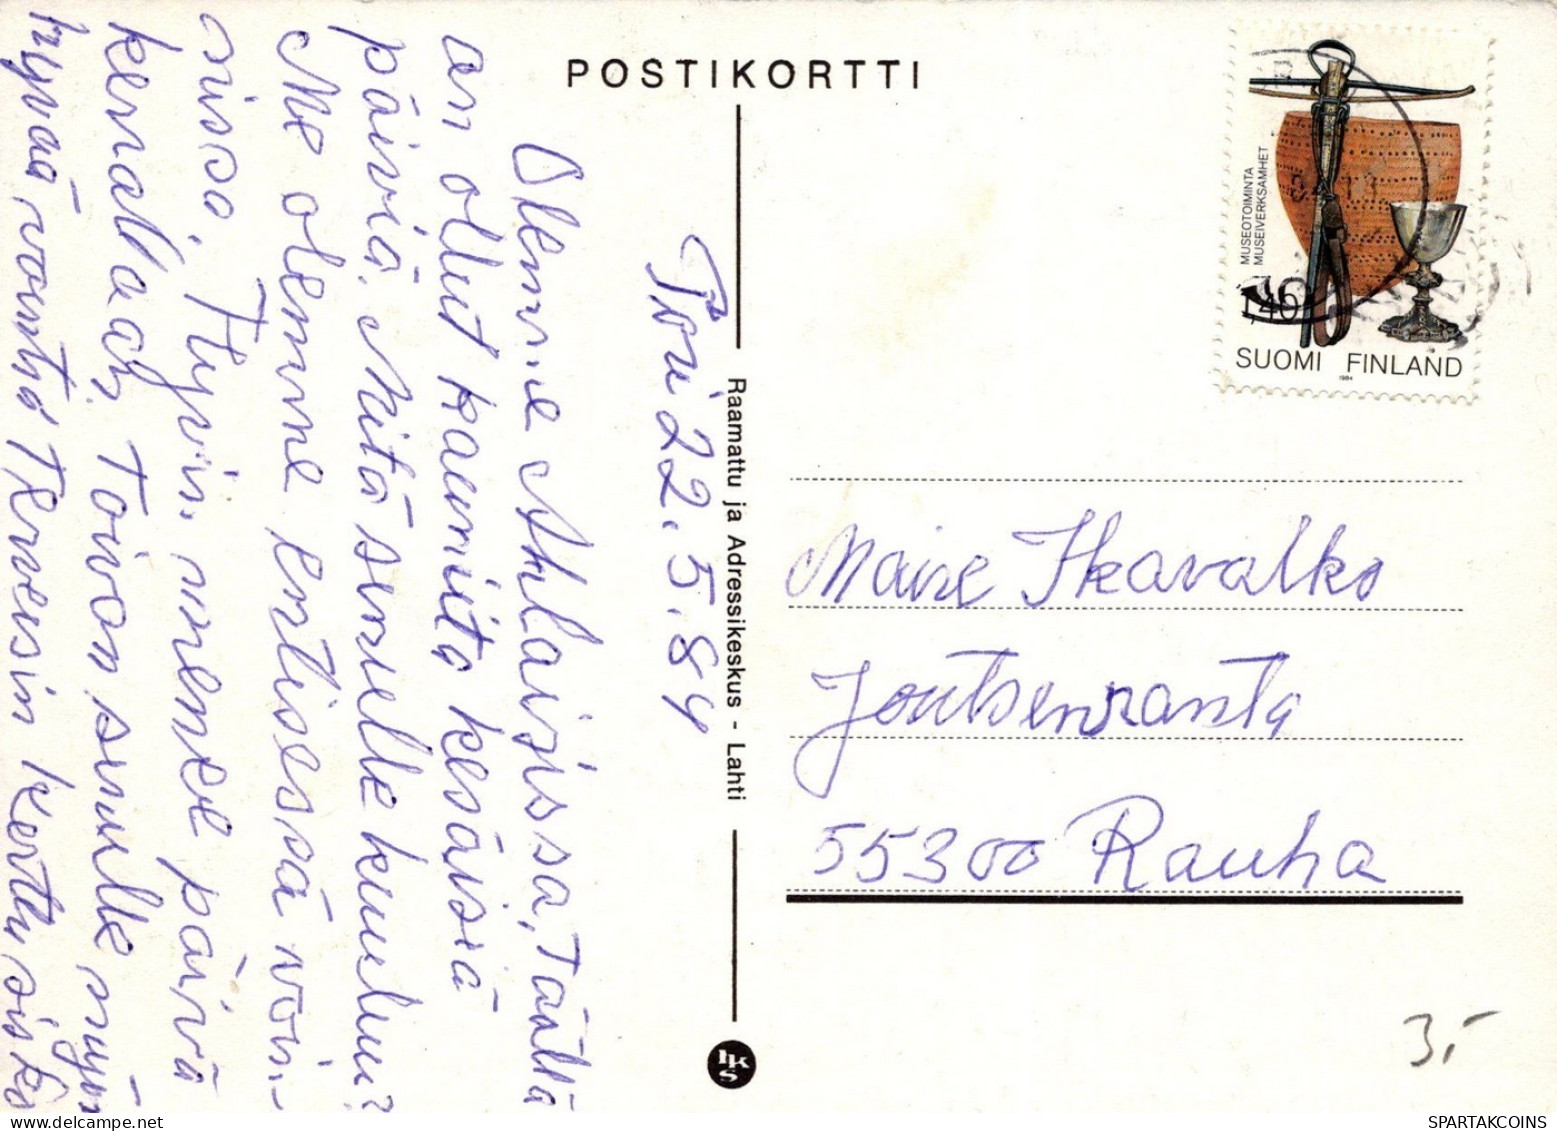 POSTIKORTTI
Pori 22.5.84
Olemme Ahlaisissa, Täällä
on ollut kauniita kesäisiä
päiviä. Mitä sinulle kuuluu?
Me olemme entisessä voin-
nissa. Hyvin menee päivä
kerrallaan. Toivon sinulle myös
hyvää vointia Terveisin Kerttu sisko
Raamattu ja Adressikeskus - Lahti
IKS
MUSEOTOIMINTA
MUSEIVERKSAMHET
1,40
SUOMI FINLAND
1984
Maire Ikavalko
Joutsenranta
55300 Rauha
3,-
SPARTAKCOINS